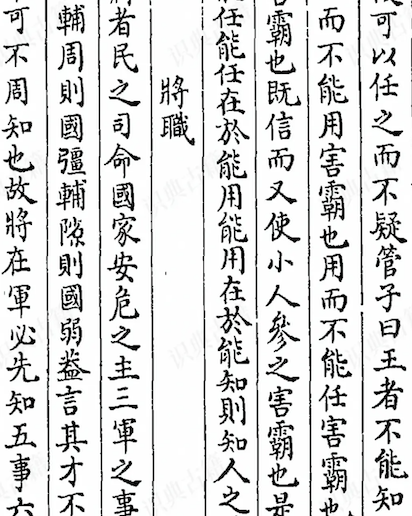 可以任之而不疑管子曰王者不能知
而不能用害霸也用而不能任害霸也
害霸也既信而又使小人參之害霸也是
任能任在於能用能用在於能知則知人之
將職
者民之司命國家安危之主三軍之事
輔周則國彊輔隙則國弱葢言其才不
可不周知也故將在軍必先知五事六